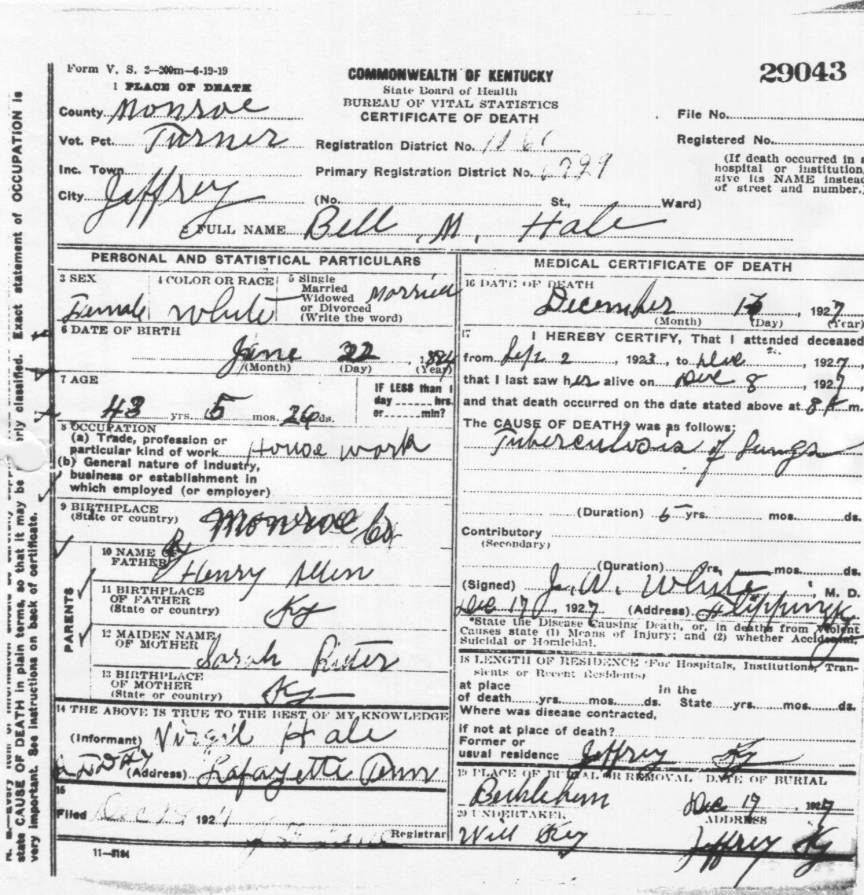 Form V. S. 2—200m—6-19-19
1 PLACE OF DEATH
County Monroe
Vot. Pct. Turner
Inc. Town
City Jeffrey
COMMONWEALTH OF KENTUCKY
State Board of Health
BUREAU OF VITAL STATISTICS
CERTIFICATE OF DEATH
Registration District No.
Primary Registration District No.
(No. St., Ward)
29043
File No.
Registered No.
(If death occurred in a
hospital or institution,
give its NAME instead
of street and number.)
2 FULL NAME Bell M. Hale
PERSONAL AND STATISTICAL PARTICULARS
3 SEX Female
4 COLOR OR RACE White
5 Single
Married
Widowed
or Divorced
(Write the word) Married
6 DATE OF BIRTH
June 22, 1884
(Month) (Day) (Year)
7 AGE
43 yrs. 5 mos. 26 ds.
IF LESS than 1
day hrs.
or min?
8 OCCUPATION
(a) Trade, profession or
particular kind of work House work
(b) General nature of industry,
business or establishment in
which employed (or employer)
9 BIRTHPLACE
(State or country) Monroe Co
PARENTS
10 NAME OF
FATHER Henry Allen
11 BIRTHPLACE
OF FATHER
(State or country) Ky
12 MAIDEN NAME
OF MOTHER Sarah Ritter
13 BIRTHPLACE
OF MOTHER
(State or country) Ky
14 THE ABOVE IS TRUE TO THE BEST OF MY KNOWLEDGE
(Informant) Virgil Hale
(Address) Lafayette Tenn
15
Filed Dec 192
Registrar
11—8184
MEDICAL CERTIFICATE OF DEATH
16 DATE OF DEATH
December , 1927
(Month) (Day) (Year)
17 I HEREBY CERTIFY, That I attended deceased
from Sept 2 1923, to , 1927,
that I last saw her alive on 8, 1927
and that death occurred on the date stated above at 8 m.
The CAUSE OF DEATH* was as follows:
Tuberculosis of Lungs
(Duration) 5 yrs. mos. ds.
Contributory
(Secondary)
(Duration) yrs. mos. ds.
(Signed) J. W. White, M. D.
Dec 17, 1927 (Address) Flippin Ky
*State the Disease Causing Death, or, in deaths from Violent
Causes state (1) Means of Injury; and (2) whether Accidental,
Suicidal or Homicidal.
18 LENGTH OF RESIDENCE (For Hospitals, Institutions, Tran-
sients or Recent Residents)
at place In the
of death yrs. mos. ds. State yrs. mos. ds.
Where was disease contracted,
if not at place of death?
Former or
usual residence Jeffrey Ky
19 PLACE OF BURIAL OR REMOVAL DATE OF BURIAL
Bethlehem Dec 17, 1927
20 UNDERTAKER ADDRESS
Will Key Jeffrey Ky
state CAUSE OF DEATH in plain terms, so that it may be
Exact statement of OCCUPATION is
very important. See instructions on back of certificate.